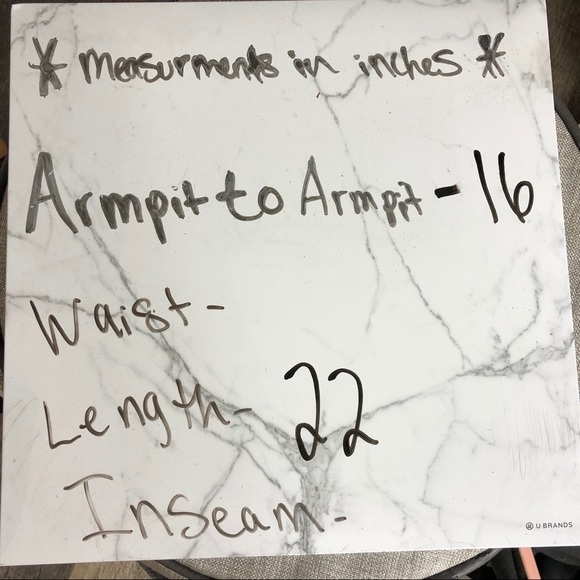 * Measurments in inches *
Armpit to Armpit - 16
Waist -
Length - 22
Inseam -
U BRANDS